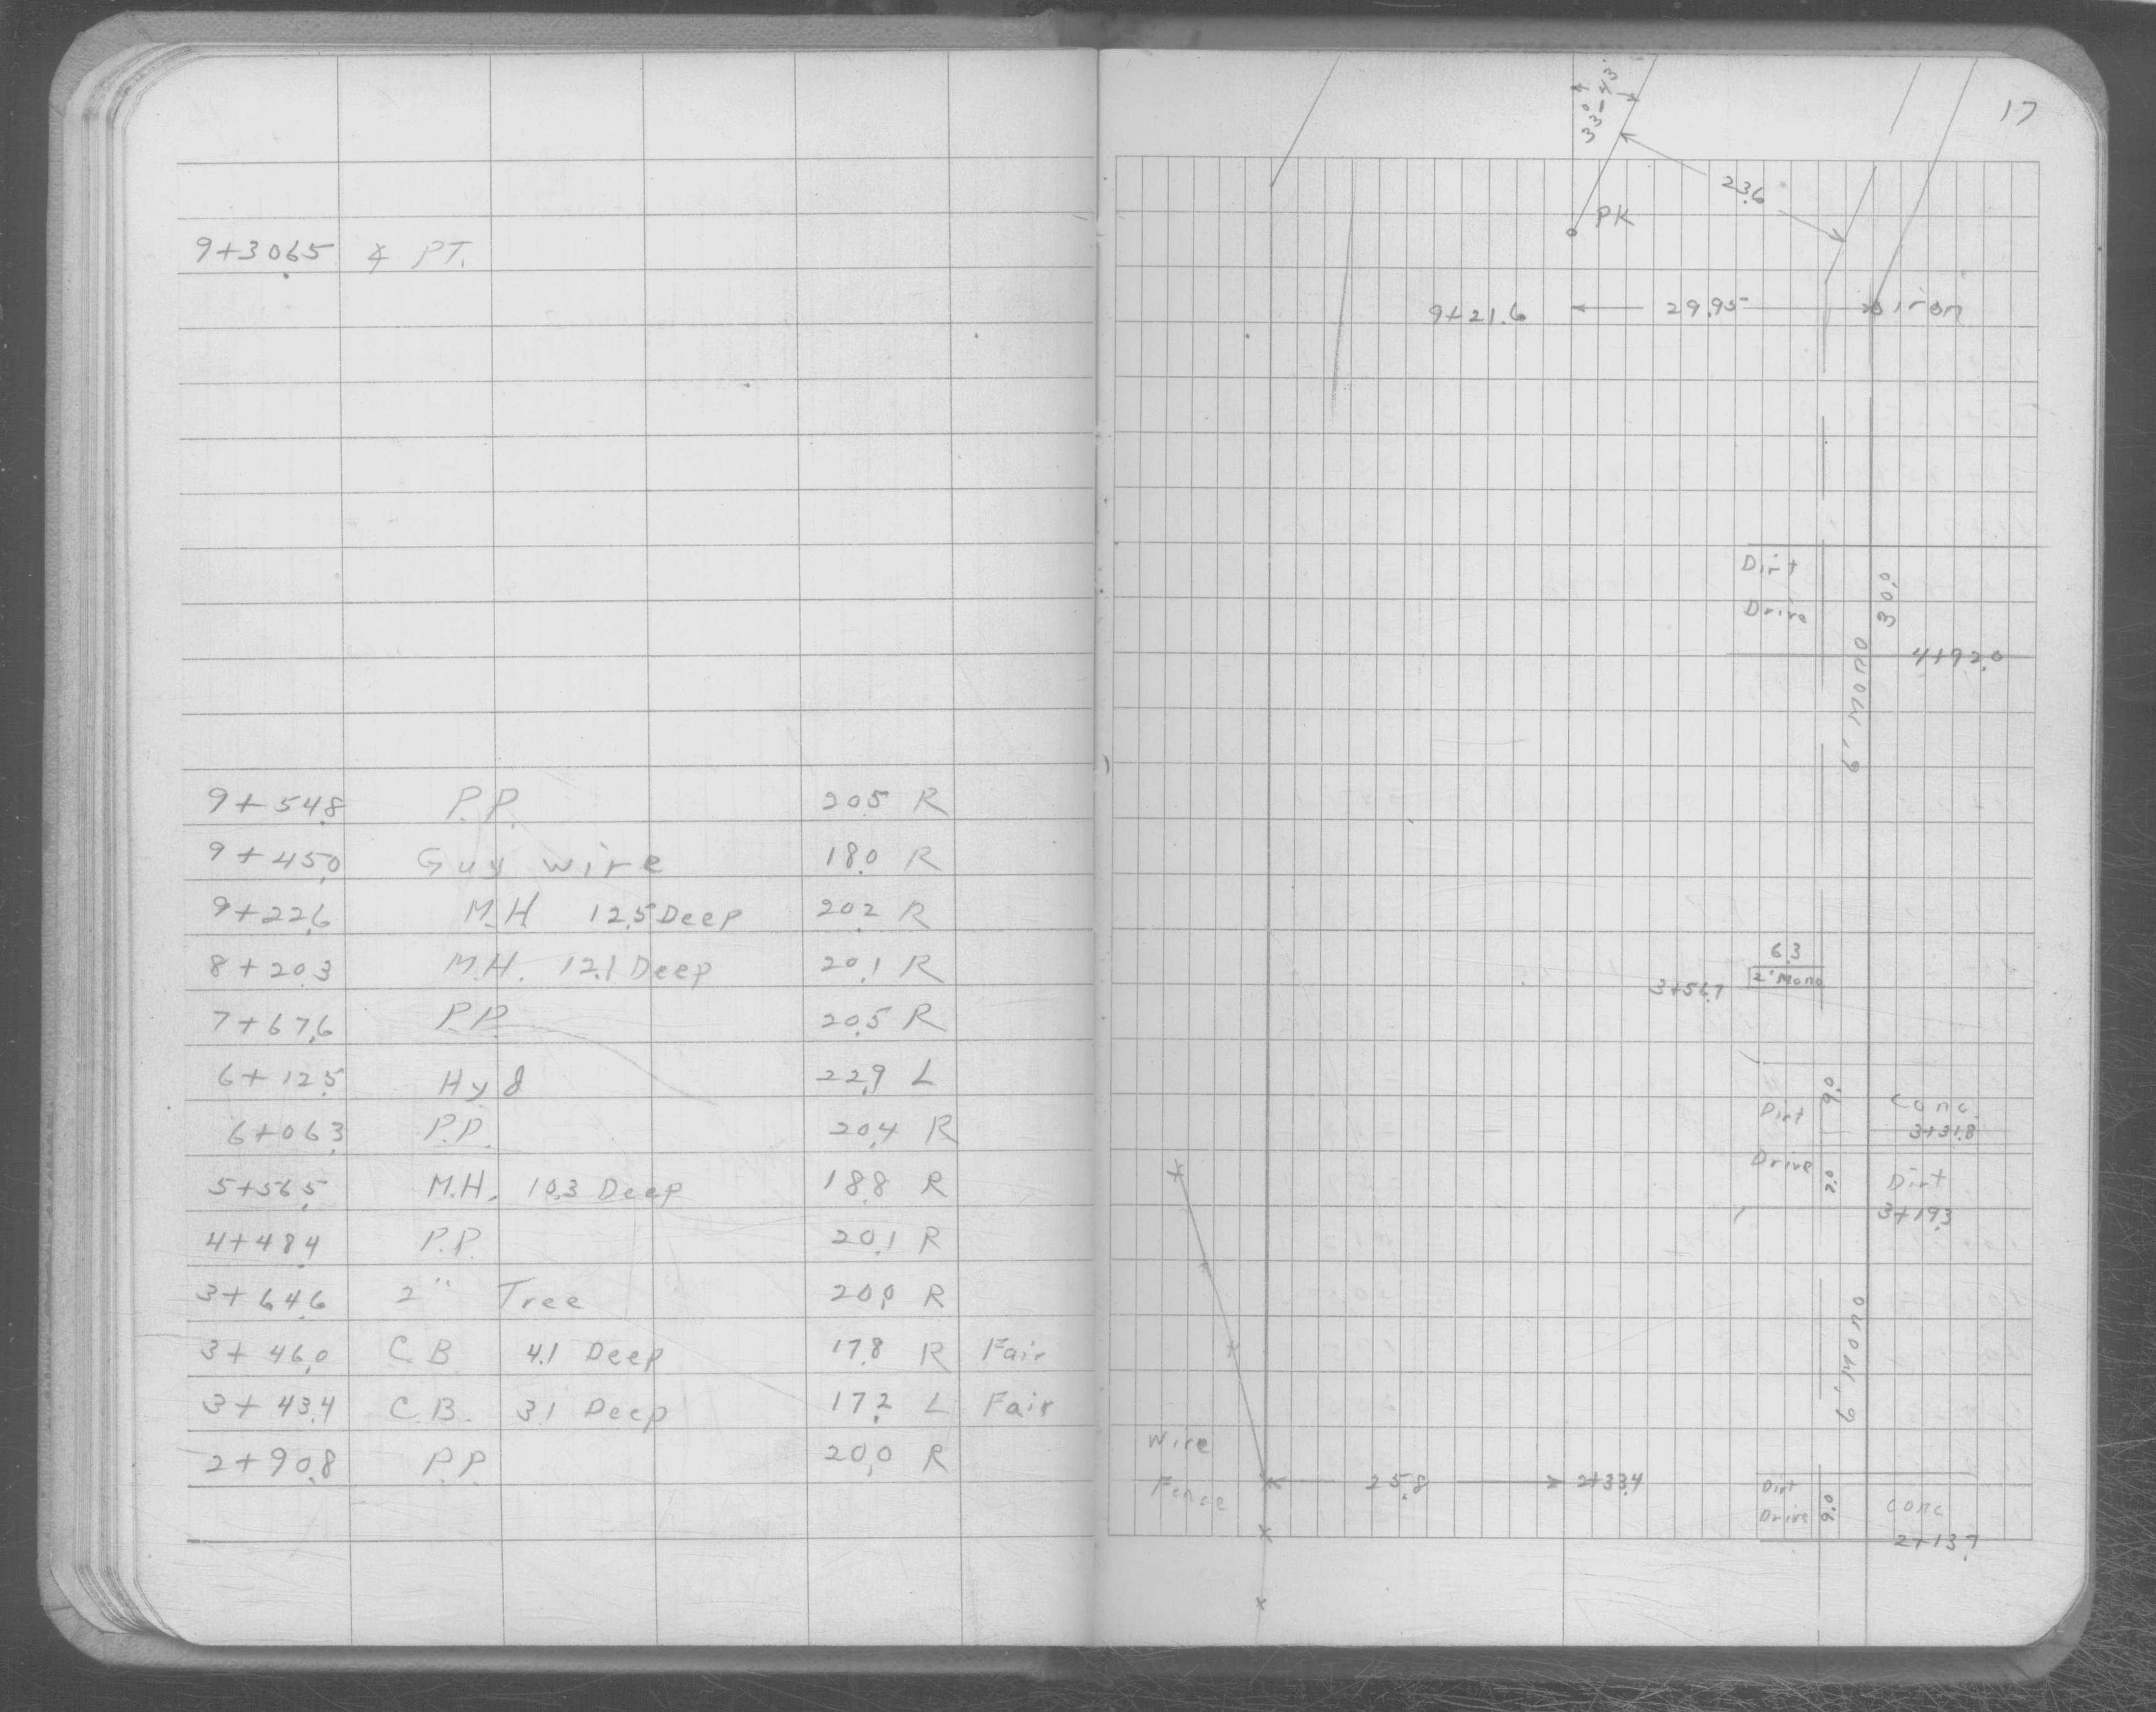 9+30.65 ∡ PT.
9+54.8 P.P. 20.5 R
9+45.0 Guy wire 18.0 R
9+22.6 M.H. 12.5 Deep 20.2 R
8+20.3 M.H. 12.1 Deep 20.1 R
7+67.6 P.P. 20.5 R
6+12.5 Hyd 22.9 L
6+06.3 P.P. 20.4 R
5+56.5 M.H. 10.3 Deep 18.8 R
4+48.4 P.P. 20.1 R
3+64.6 2" Tree 20.0 R
3+46.0 C.B 4.1 Deep 17.8 R Fair
3+43.4 C.B. 3.1 Deep 17.2 L Fair
2+90.8 P.P. 20.0 R
17
33°-43'
23.6
PK
9+21.6 29.95 Iron
Dirt
Drive
30.0
4+92.0
6' Mono
6.3
2' Mono
3+56.7
9.0
Dirt
Conc.
3+31.8
Drive
7.0
Dirt
3+19.3
6' Mono
Wire
Fence
25.8
2+33.4
Dirt
Drive
9.0
Conc
2+13.7